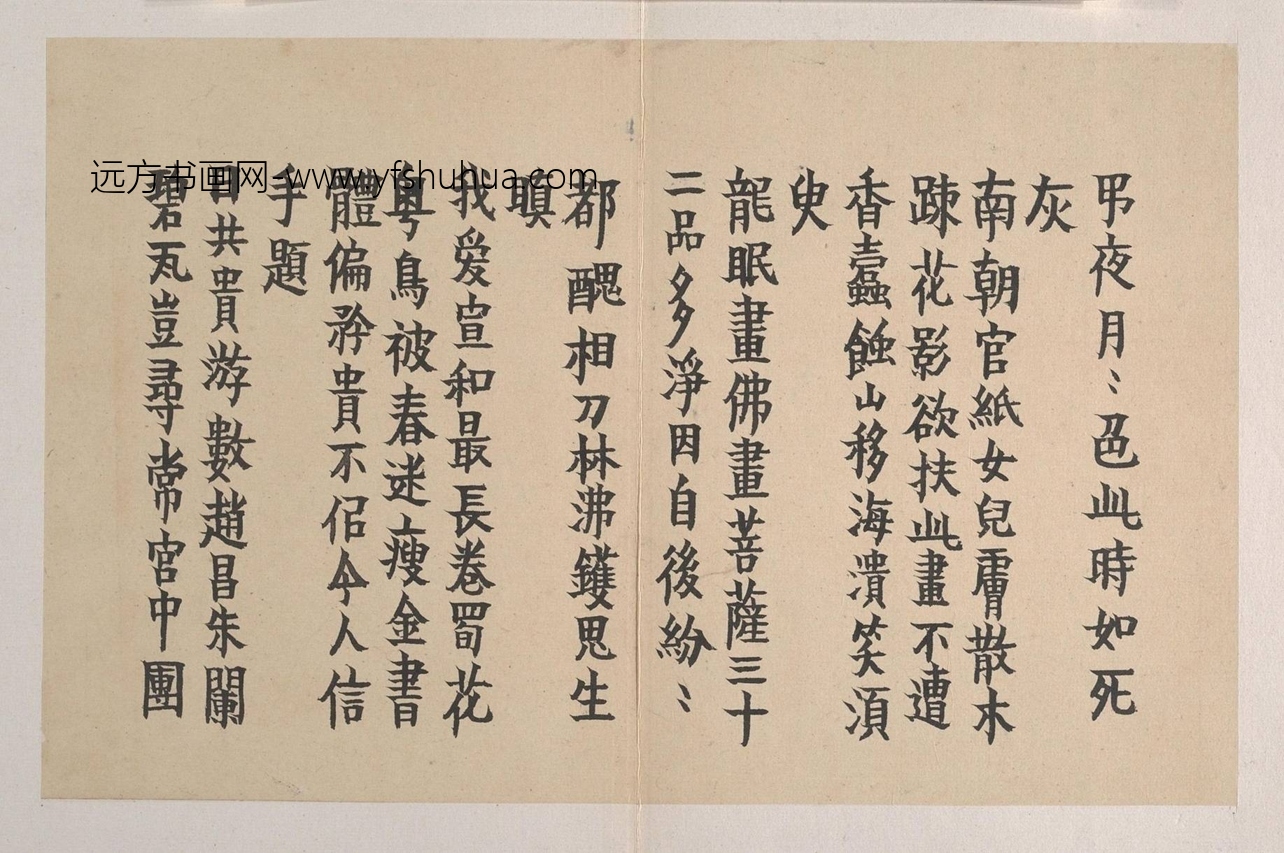 弔夜月〻色此時如死
灰
南朝官紙女兒膚散木
踈花影欲扶此畫不遭
香蠹蝕山移海潰笑須
臾
龍眠畫佛畫菩薩三十
二品多淨因自後紛〻
都醜相刀林沸鑊鬼生
瞋
我爱宣和最長卷蜀花
粤鳥被春迷上瘦金書
體偏矜貴不侶今人信
手題
日共貴游數趙昌朱闌
碧瓦豈尋常宮中團
远方书画网-www.yfshuhua.com